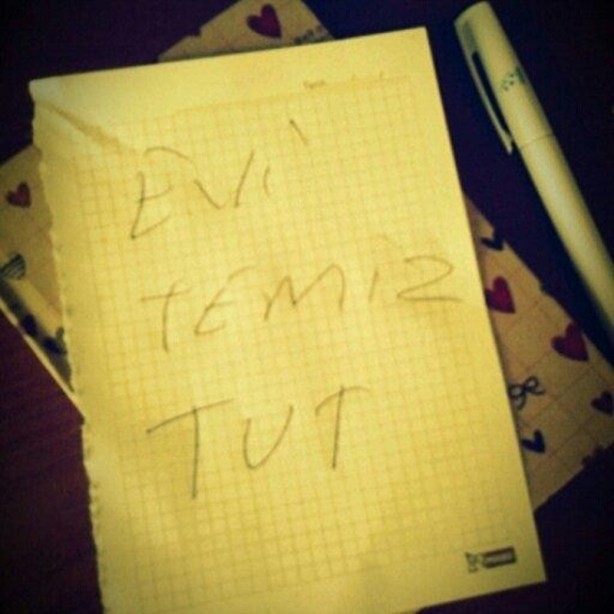 EVİ
TEMİZ
TUT